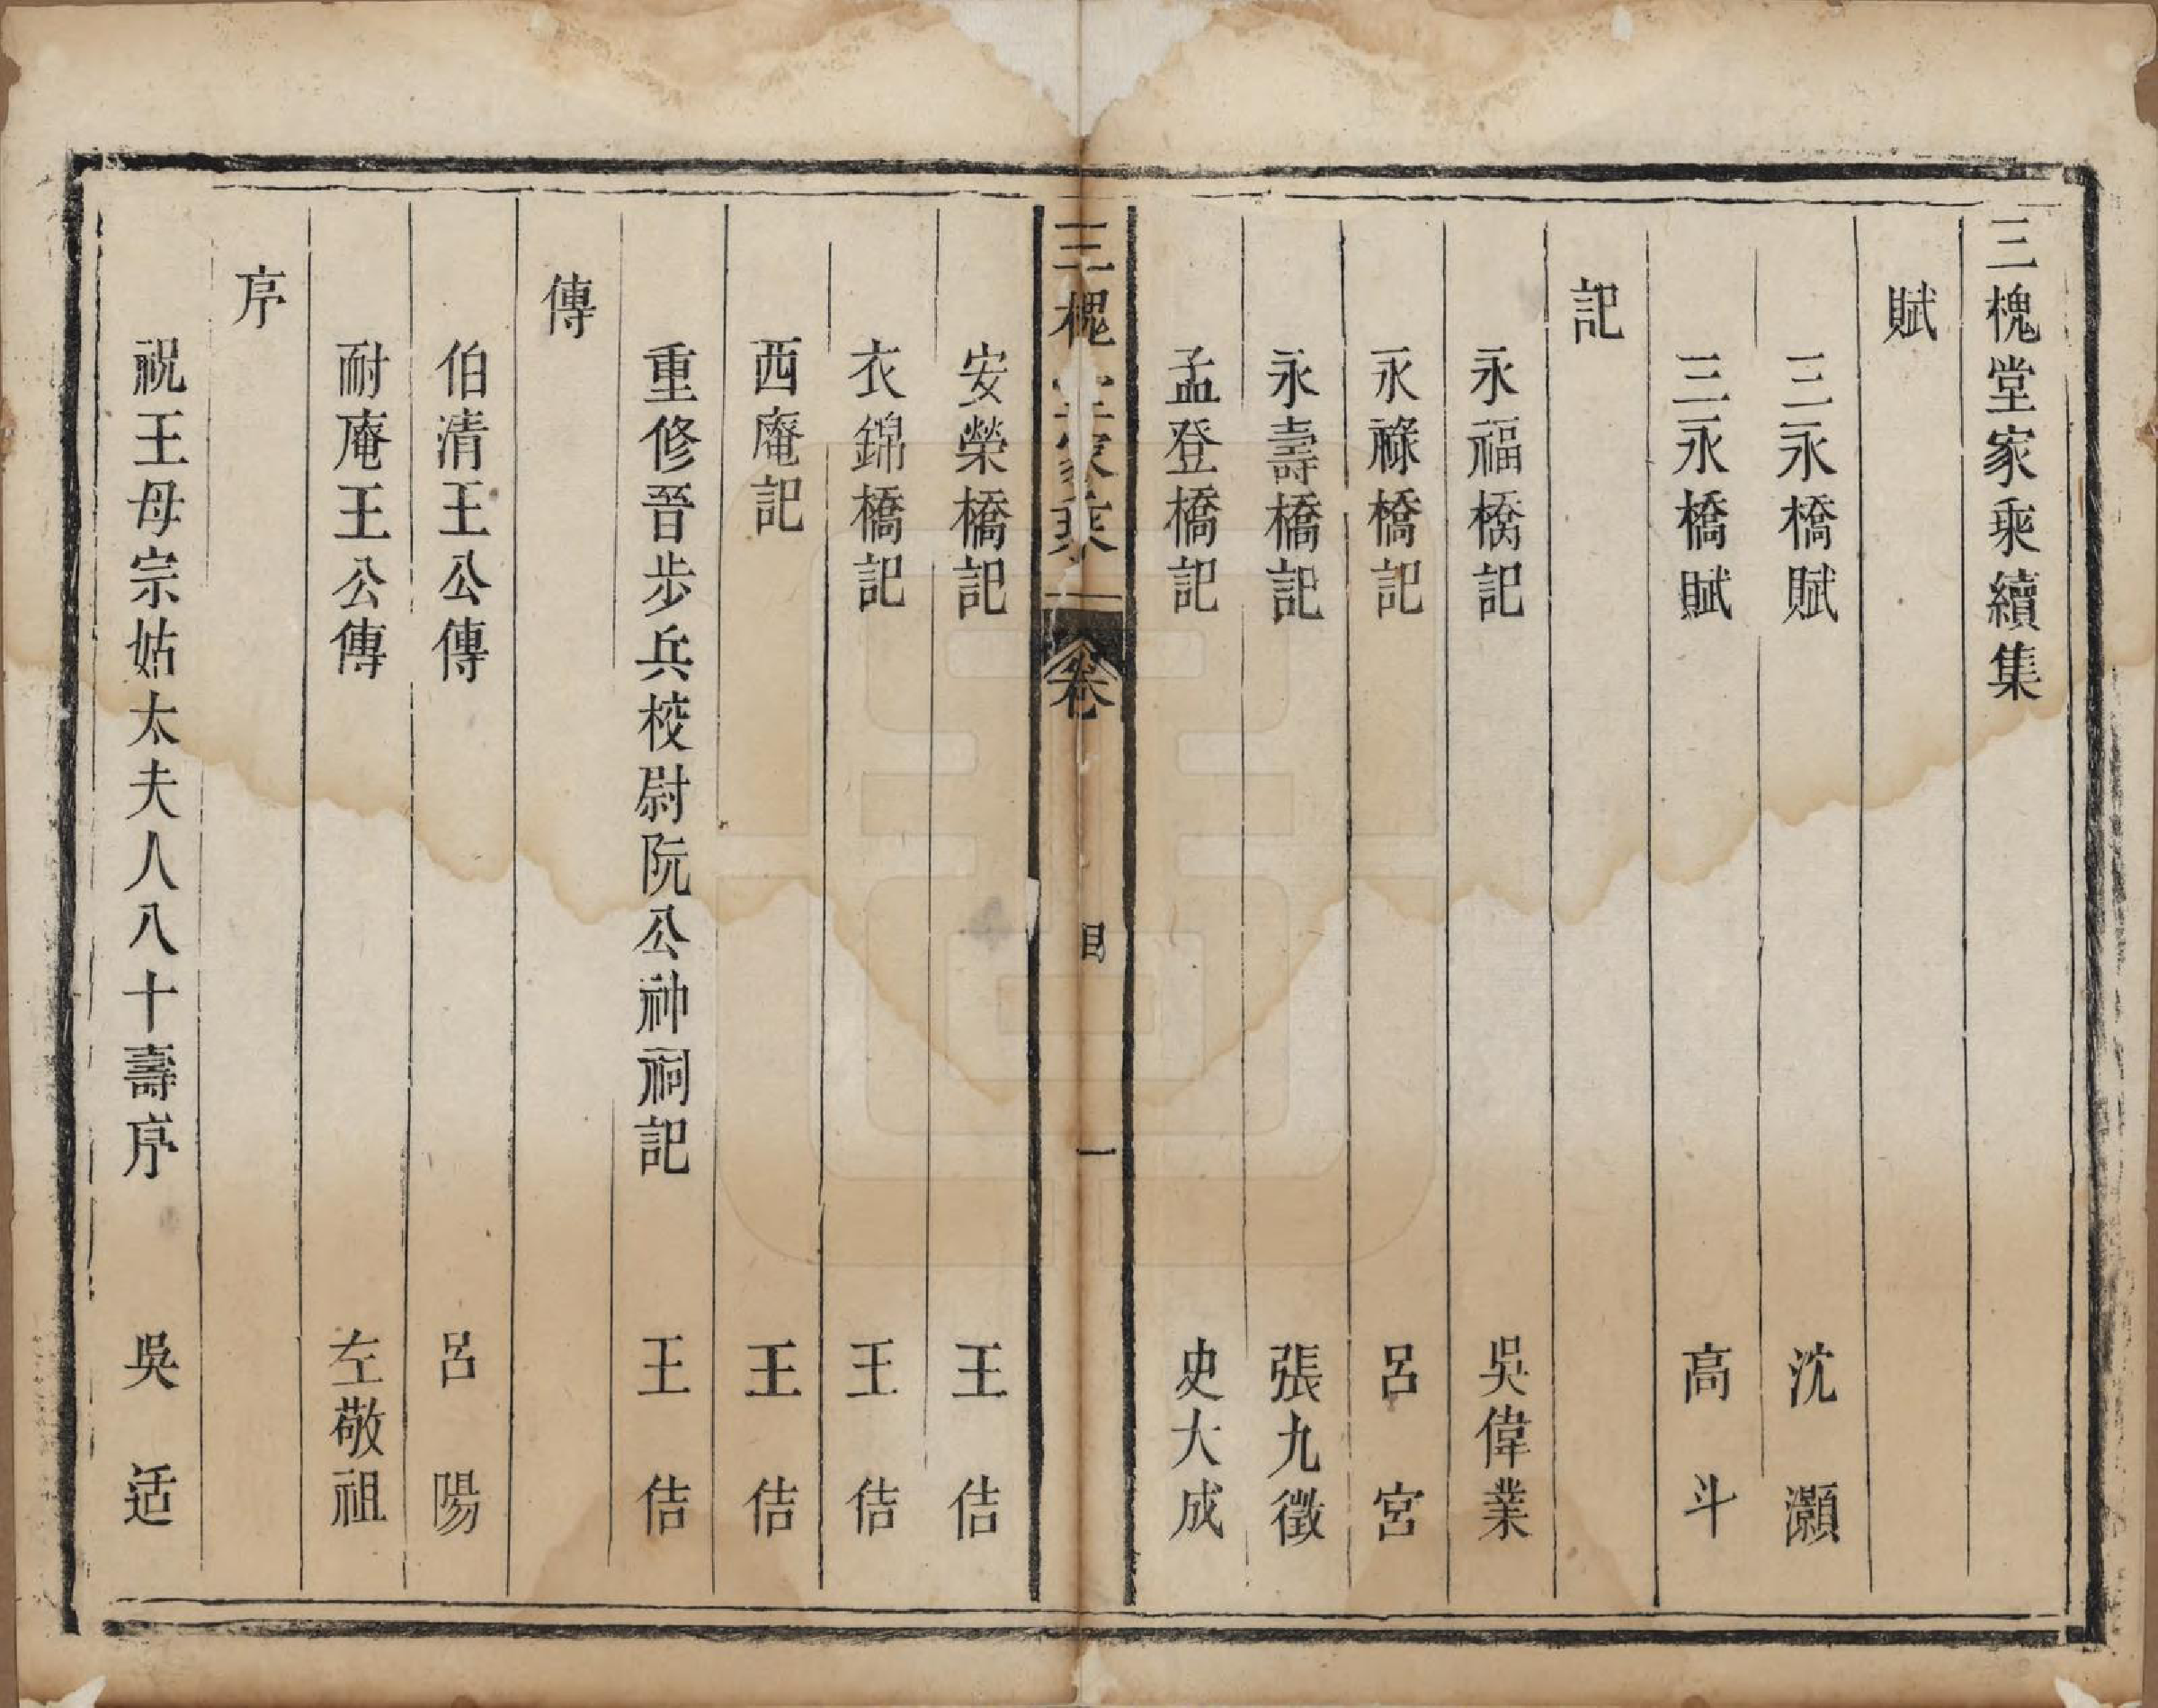 三槐堂家乘續集
賦
三永橋賦 沈灝
三永橋賦 高斗
記
永福橋記 吳偉業
永祿橋記 呂宮
永壽橋記 張九徵
孟登橋記 史大成
三槐堂家乘 卷 目 一
安榮橋記 王佶
衣錦橋記 王佶
西庵記 王佶
重修晉步兵校尉阮公神祠記 王佶
傳
伯清王公傳 呂陽
耐庵王公傳 左敬祖
序
祝王母宗姑太夫人八十壽序 吳适